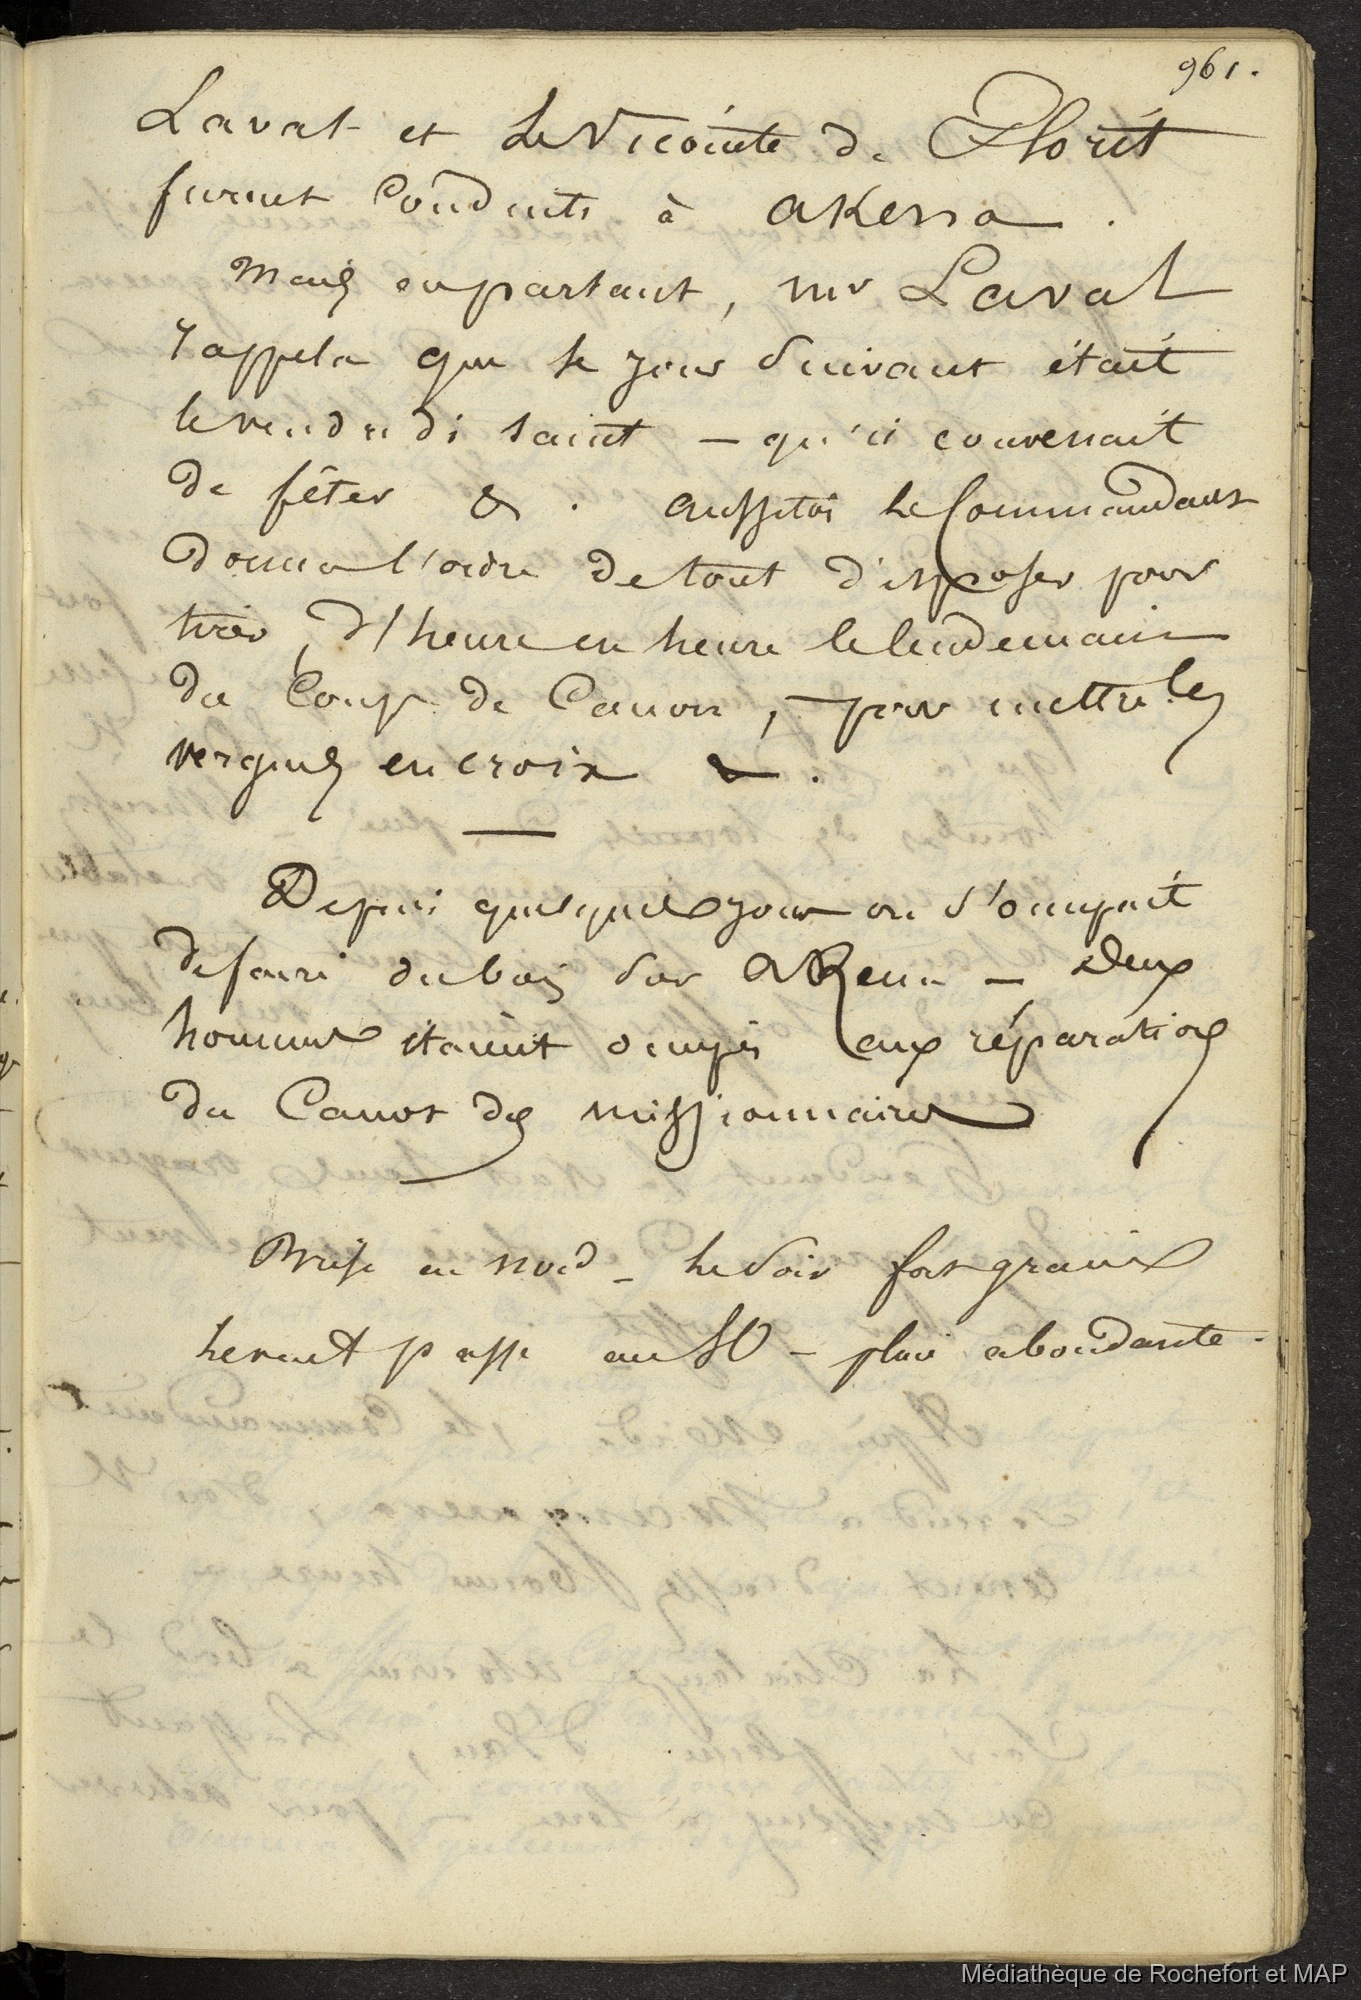 961.
Laval et Le Vicomte de Florit
furent Conduits à akena.
Mais en partant, mr Laval
rappela que le jour Suivant était
le vendredi saint — qu'il convenait
de fêter &. aussitôt le Commandant
donna l'ordre de tout disposer pour
tirer, d'heure en heure le lendemain
du Coup de Canon, — pour mettre les
vergues en croix &.
Depuis quelques jours on s'occupait
de faire du bois sur AKena — deux
hommes étaient occupés aux réparations
du Canot des missionnaires
Brise au nord — le Soir fort grains
le vent passe au SO — pluie abondante.
Médiathèque de Rochefort et MAP